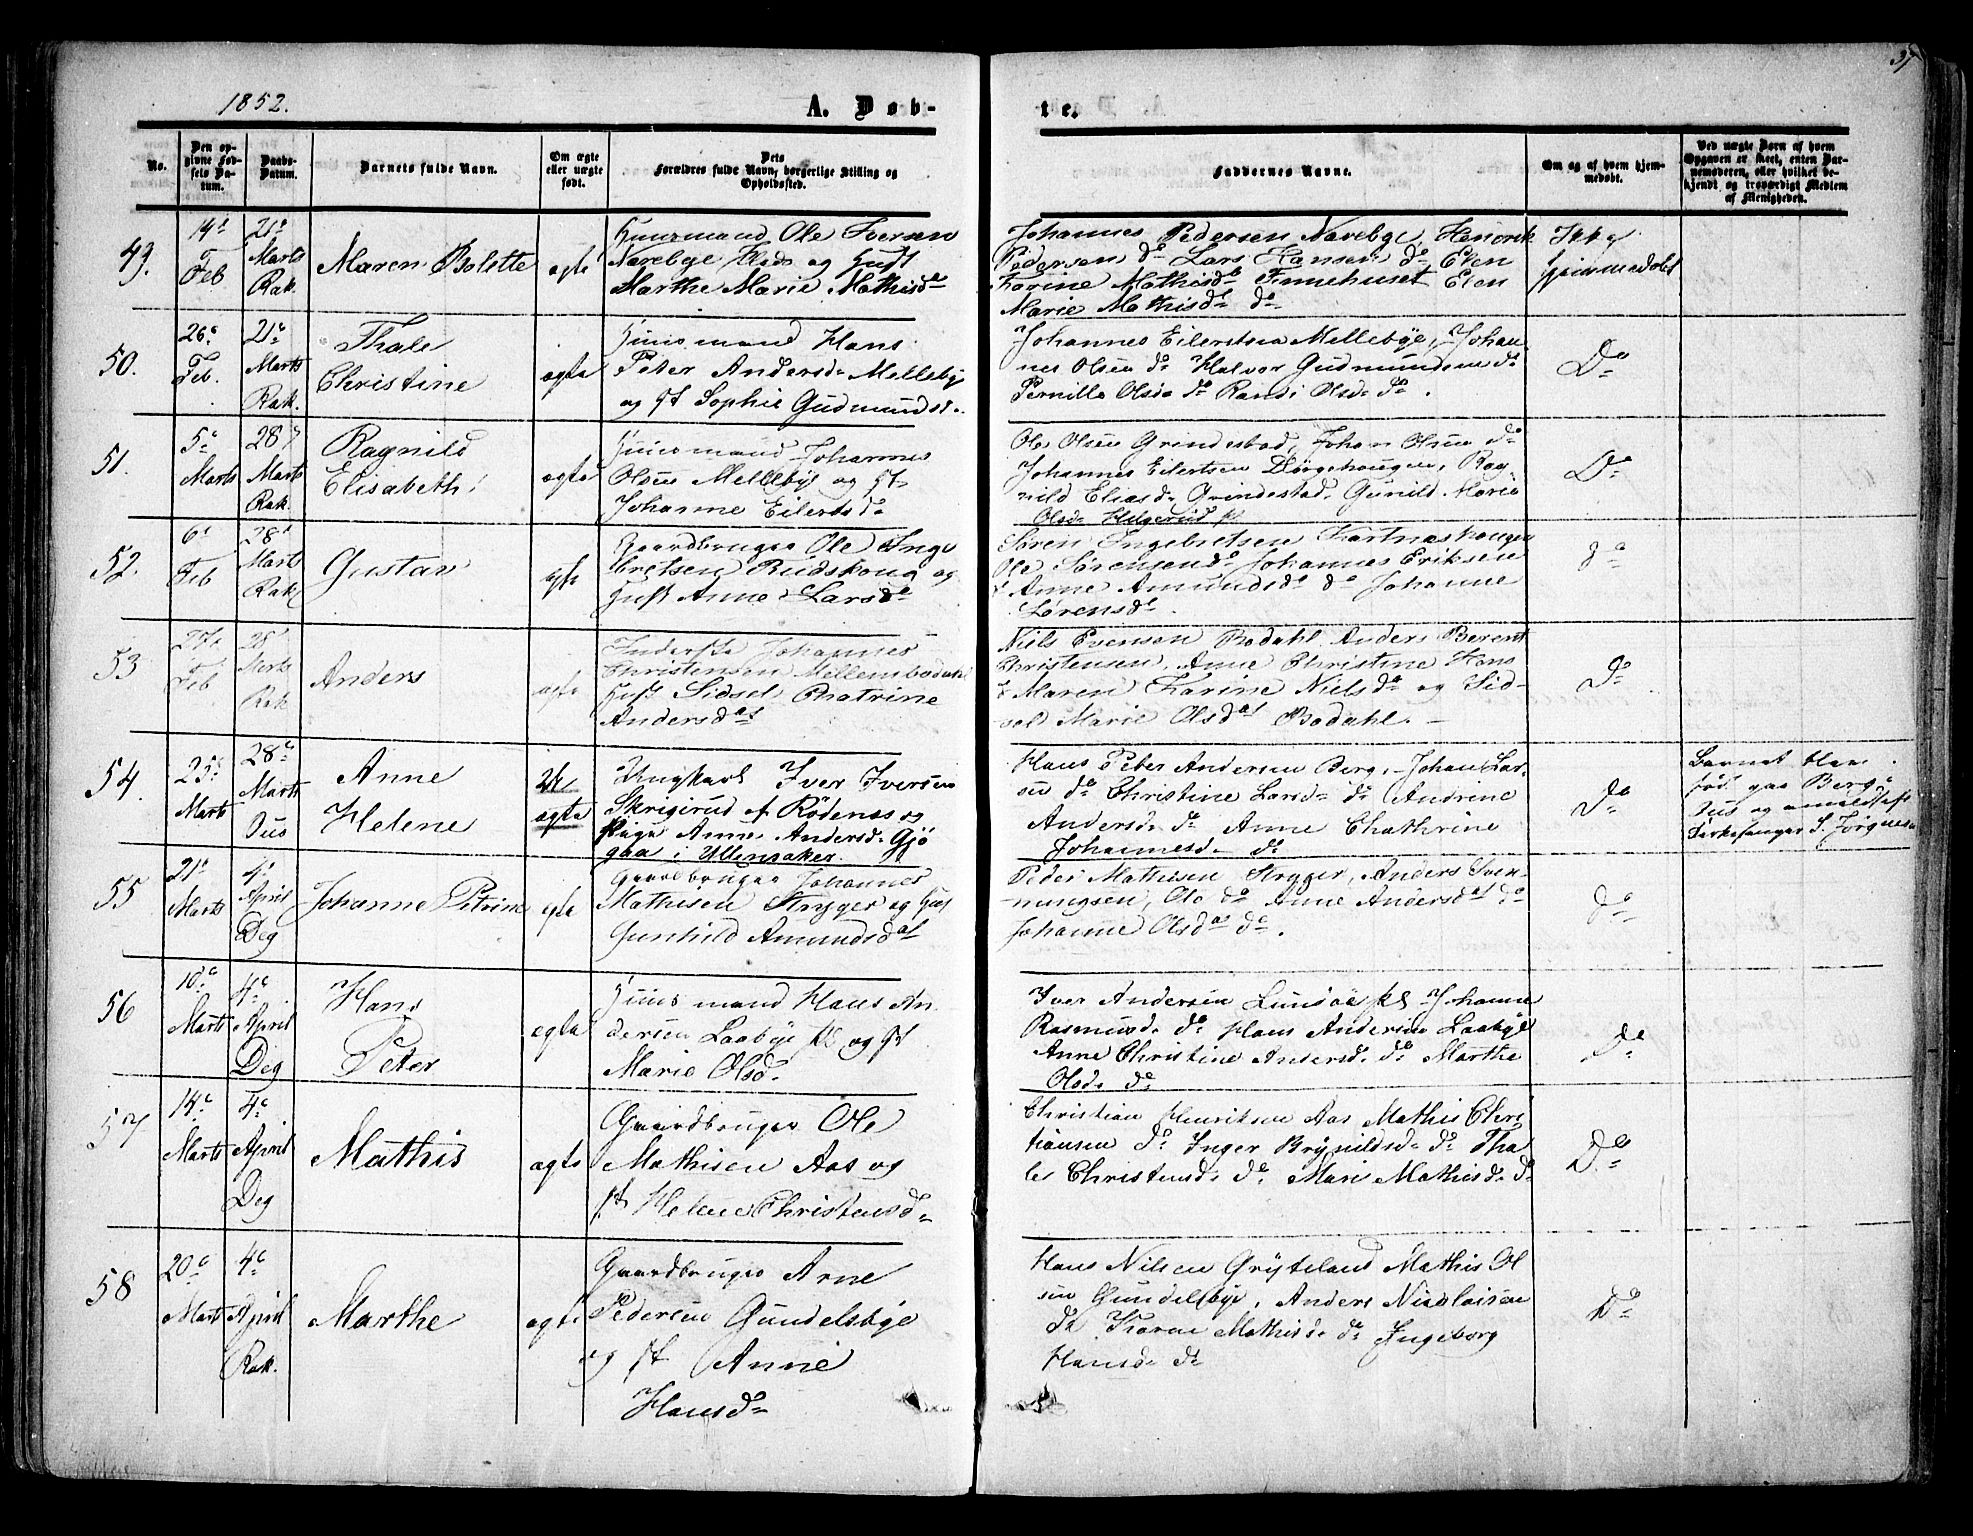 1852.
A. Døb-
te.
37
No.
Den op-
givne Fød-
sels Da-
tum.
Daabs-
Datum.
Barnets fulde Navn.
Om ægte
eller uægte
født.
Dets
Forældres fulde Navn, borgerlige Stilling og
Opholdssted.
Faddernes Navne.
Om og af hvem hjem-
medøbt.
Ved uægte Børn af hvem
Opgaven er skeet, enten Bar-
nemoderen, eller hvilket be-
kjendt og troværdigt Medlem
af Menigheden.
49.
Feb
21
Marts
Rak.
Maren Bolette
ægte
Huusmand Ole Iversen
Narebye og Hust
Marthe Marie Mathisd
Johannes Pedersen Narebye, Henrik
Pedersen do Lars Hansen do Elen
Karine Mathisd Finnehuset Elen
Marie Mathisd do
Ikke
hjemmedøbt
50.
26
Feb.
21
Marts
Rak.
Thale
Christine
ægte
Huusmand Hans
Peter Andersd Mellebye
og H Sophie Gudmundsd.
Johannes Eilertsen Mellebye, Johan
nes Olsen do Halvor Gudmundsen do
Pernille Olsd do Randi Olsd do.
Do
51.
5
Marts
28
Marts
Rak.
Ragnild
Elisabeth
ægte
Huusmand Johannes
Olsen Mellebye og H
Johanne Eilertsd
Ole Olsen Grindestad, Johan Olsen do
Johannes Eilertsen Dørgehougen, Rag-
nild Eliasd Grindestad, Gunild Marie
Olsd Helgerud
Do
52.
6
Feb
28
Marts
Rak
Gustav
ægte
Gaardbruger Ole Inge
bretsen Rudskoug og
Hust Anne Larsd
Søren Ingebretsen Kartneskougen
Ole Sørensen do Johannes Eriksen
Anne Amundsd do Johanne
Sørensd.
do
53
Feb
28
Marts
Rak
Anders
ægte
Inderste Johannes
Christensen Mellembodahl
Hust Sidsel Chatrine
Andersd
Niels Evensen Bodahl Anders Berent
Christensen, Anne Christine Hans
Maren Karine Nielsd og Sid-
sel Marie Olsd Bodahl.
Do
54.
25
Marts
28
Marts
Ous
Anne
Helene
uægte
Ungkarl Iver Iversen
Skrigerud af Rødenæs og
Pige Anne Andersd Gjø
gaa i Ullensaker.
Hans Peter Andersen Berg, Johan Lar-
sen do Christine Larsd do Andrine
Andersd do Anne Chathrine
Johannesd do
Do
Barnet blev
fød. paa Berg i
Ous og anmeldt af
Kirkesanger S. Jørgensen
55
21
Marts
4
April
Deg
Johanne Petrine
ægte
Gaardbruger Johannes
Mathisen Stryger og Hust
Gunhild Amundsd
Peder Mathisen Stryger, Anders Sven-
nungsen, Ole do Anne Andersd do
Johanne Olsd do.
do
56
10
Marts
4
April
Deg
Hans
Peter
ægte
Huusmand Hans An
dersen Laabye og H
Marie Olsd.
Iver Andersen Lundbye Johanne
Rasmusd do Hans Andersen Laabye
Anne Christine Andersd do Marthe
Olsd do
Do
57
14
Marts
4
April
Deg
Mathis
ægte
Gaardbruger Ole
Mathisen Aas og
H Helene Christensd
Christian Henriksen Aas Mathis Chri
tiansen do Inger Brynildsd do Tha
le Christensd do Mari Mathisd do
Do
58
20
Marts
4
April
Rak.
Marthe
ægte
Gaardbruger Arne
Pedersen Gundelsbye
og H Anne
Hansd
Hans Nilsen Gryteland Mathis Ol
sen Gundelsbye, Anders Nicolaisen
do Karen Mathisd do Ingeborg
Hansd do
Do